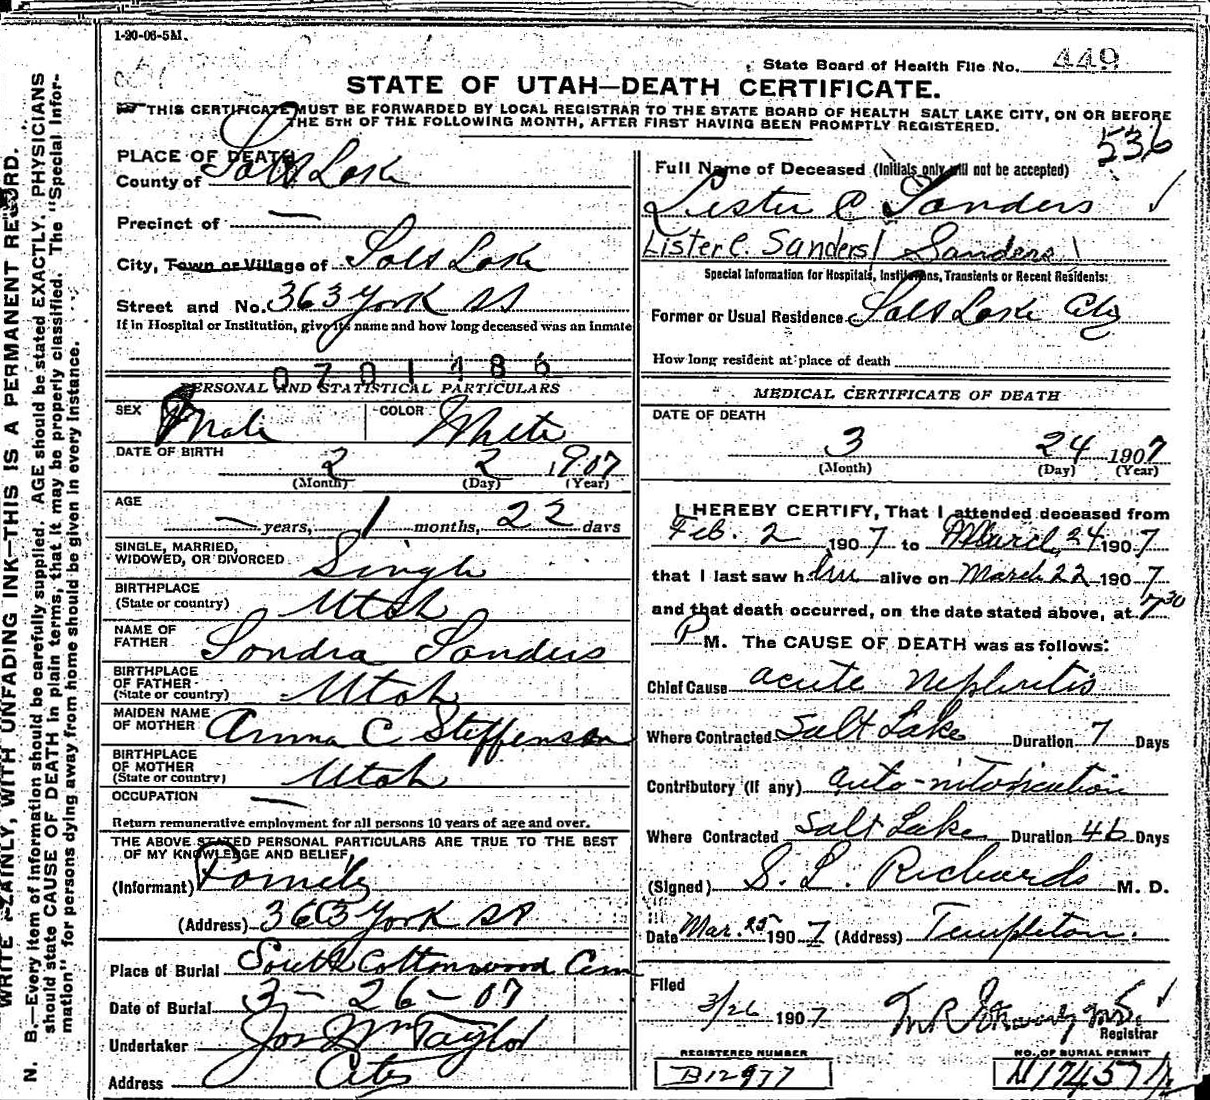 1-20-06-5M.
State Board of Health File No. 449
STATE OF UTAH—DEATH CERTIFICATE.
THIS CERTIFICATE MUST BE FORWARDED BY LOCAL REGISTRAR TO THE STATE BOARD OF HEALTH SALT LAKE CITY, ON OR BEFORE
THE 5TH OF THE FOLLOWING MONTH, AFTER FIRST HAVING BEEN PROMPTLY REGISTERED.
536
PLACE OF DEATH
County of Salt Lake
Precinct of —
City, Town or Village of Salt Lake
Street and No. 363 York St
If in Hospital or Institution, give its name and how long deceased was an inmate
0701486
PERSONAL AND STATISTICAL PARTICULARS
SEX Male COLOR White
DATE OF BIRTH
2 2 1907
(Month) (Day) (Year)
AGE
— years, 1 months, 22 days
SINGLE, MARRIED,
WIDOWED, OR DIVORCED Single
BIRTHPLACE
(State or country) Utah
NAME OF
FATHER Sondra Sanders
BIRTHPLACE
OF FATHER
(State or country) Utah
MAIDEN NAME
OF MOTHER Anna C Steffenson
BIRTHPLACE
OF MOTHER
(State or country) Utah
OCCUPATION —
Return remunerative employment for all persons 10 years of age and over.
THE ABOVE STATED PERSONAL PARTICULARS ARE TRUE TO THE BEST
OF MY KNOWLEDGE AND BELIEF
(Informant) Family
(Address) 363 York St
Place of Burial South Cottonwood Cem
Date of Burial 3-26-07
Undertaker Jos Wm Taylor
Address City
Full Name of Deceased (Initials only will not be accepted)
Lester C Sanders
Lister C. Sanders/ Sanders
Special Information for Hospitals, Institutions, Transients or Recent Residents:
Former or Usual Residence Salt Lake City
How long resident at place of death
MEDICAL CERTIFICATE OF DEATH
DATE OF DEATH
3 24 1907
(Month) (Day) (Year)
I HEREBY CERTIFY, That I attended deceased from
Feb. 2 1907 to March 24 1907
that I last saw him alive on March 22 1907
and that death occurred, on the date stated above, at 7 30
P M. The CAUSE OF DEATH was as follows:
Chief Cause acute nephritis
Where Contracted Salt Lake Duration 7 Days
Contributory (if any) auto-intoxication
Where Contracted Salt Lake Duration 46 Days
(Signed) S. L. Richards M. D.
Date Mar. 25 1907 (Address) Templeton.
Filed
3/26 1907
Registrar
REGISTERED NUMBER
B12977
NO. OF BURIAL PERMIT
WRITE PLAINLY, WITH UNFADING INK—THIS IS A PERMANENT RECORD.
N. B.—Every item of information should be carefully supplied. AGE should be stated EXACTLY. PHYSICIANS
should state CAUSE OF DEATH in plain terms, that it may be properly classified. The "Special Infor-
mation" for persons dying away from home should be given in every instance.